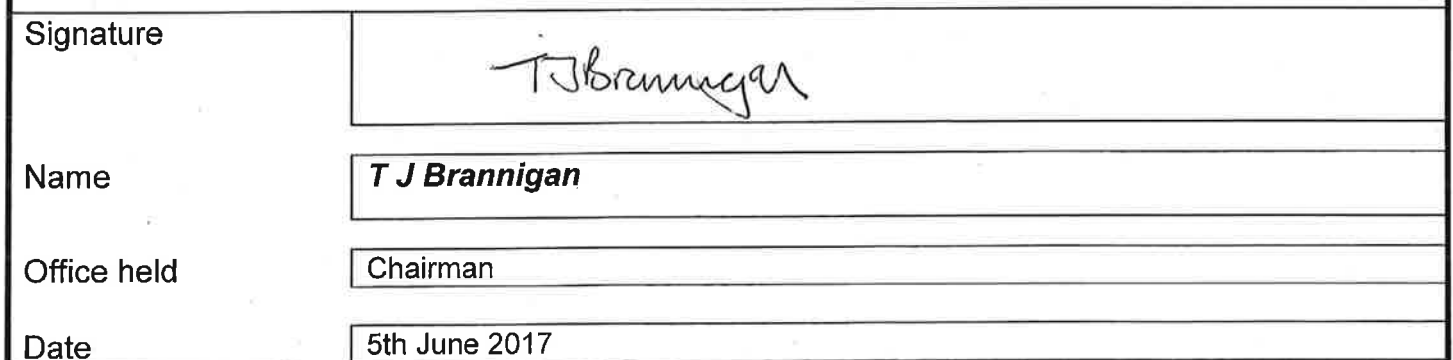 Signature
TJBrannigan
Name
T J Brannigan
Office held
Chairman
Date
5th June 2017